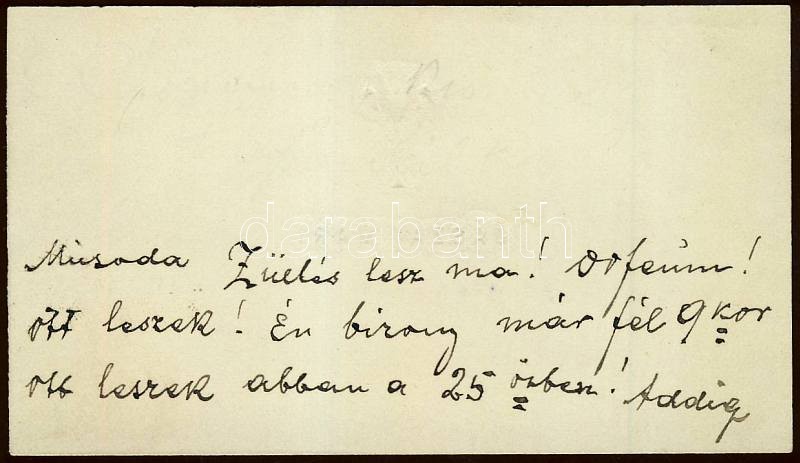 darabanth
Műsoda Züllés lesz ma! Orfeum!
ott leszek! Én bizony már fél 9 kor
ott leszek abban a 25 ösben! Addig